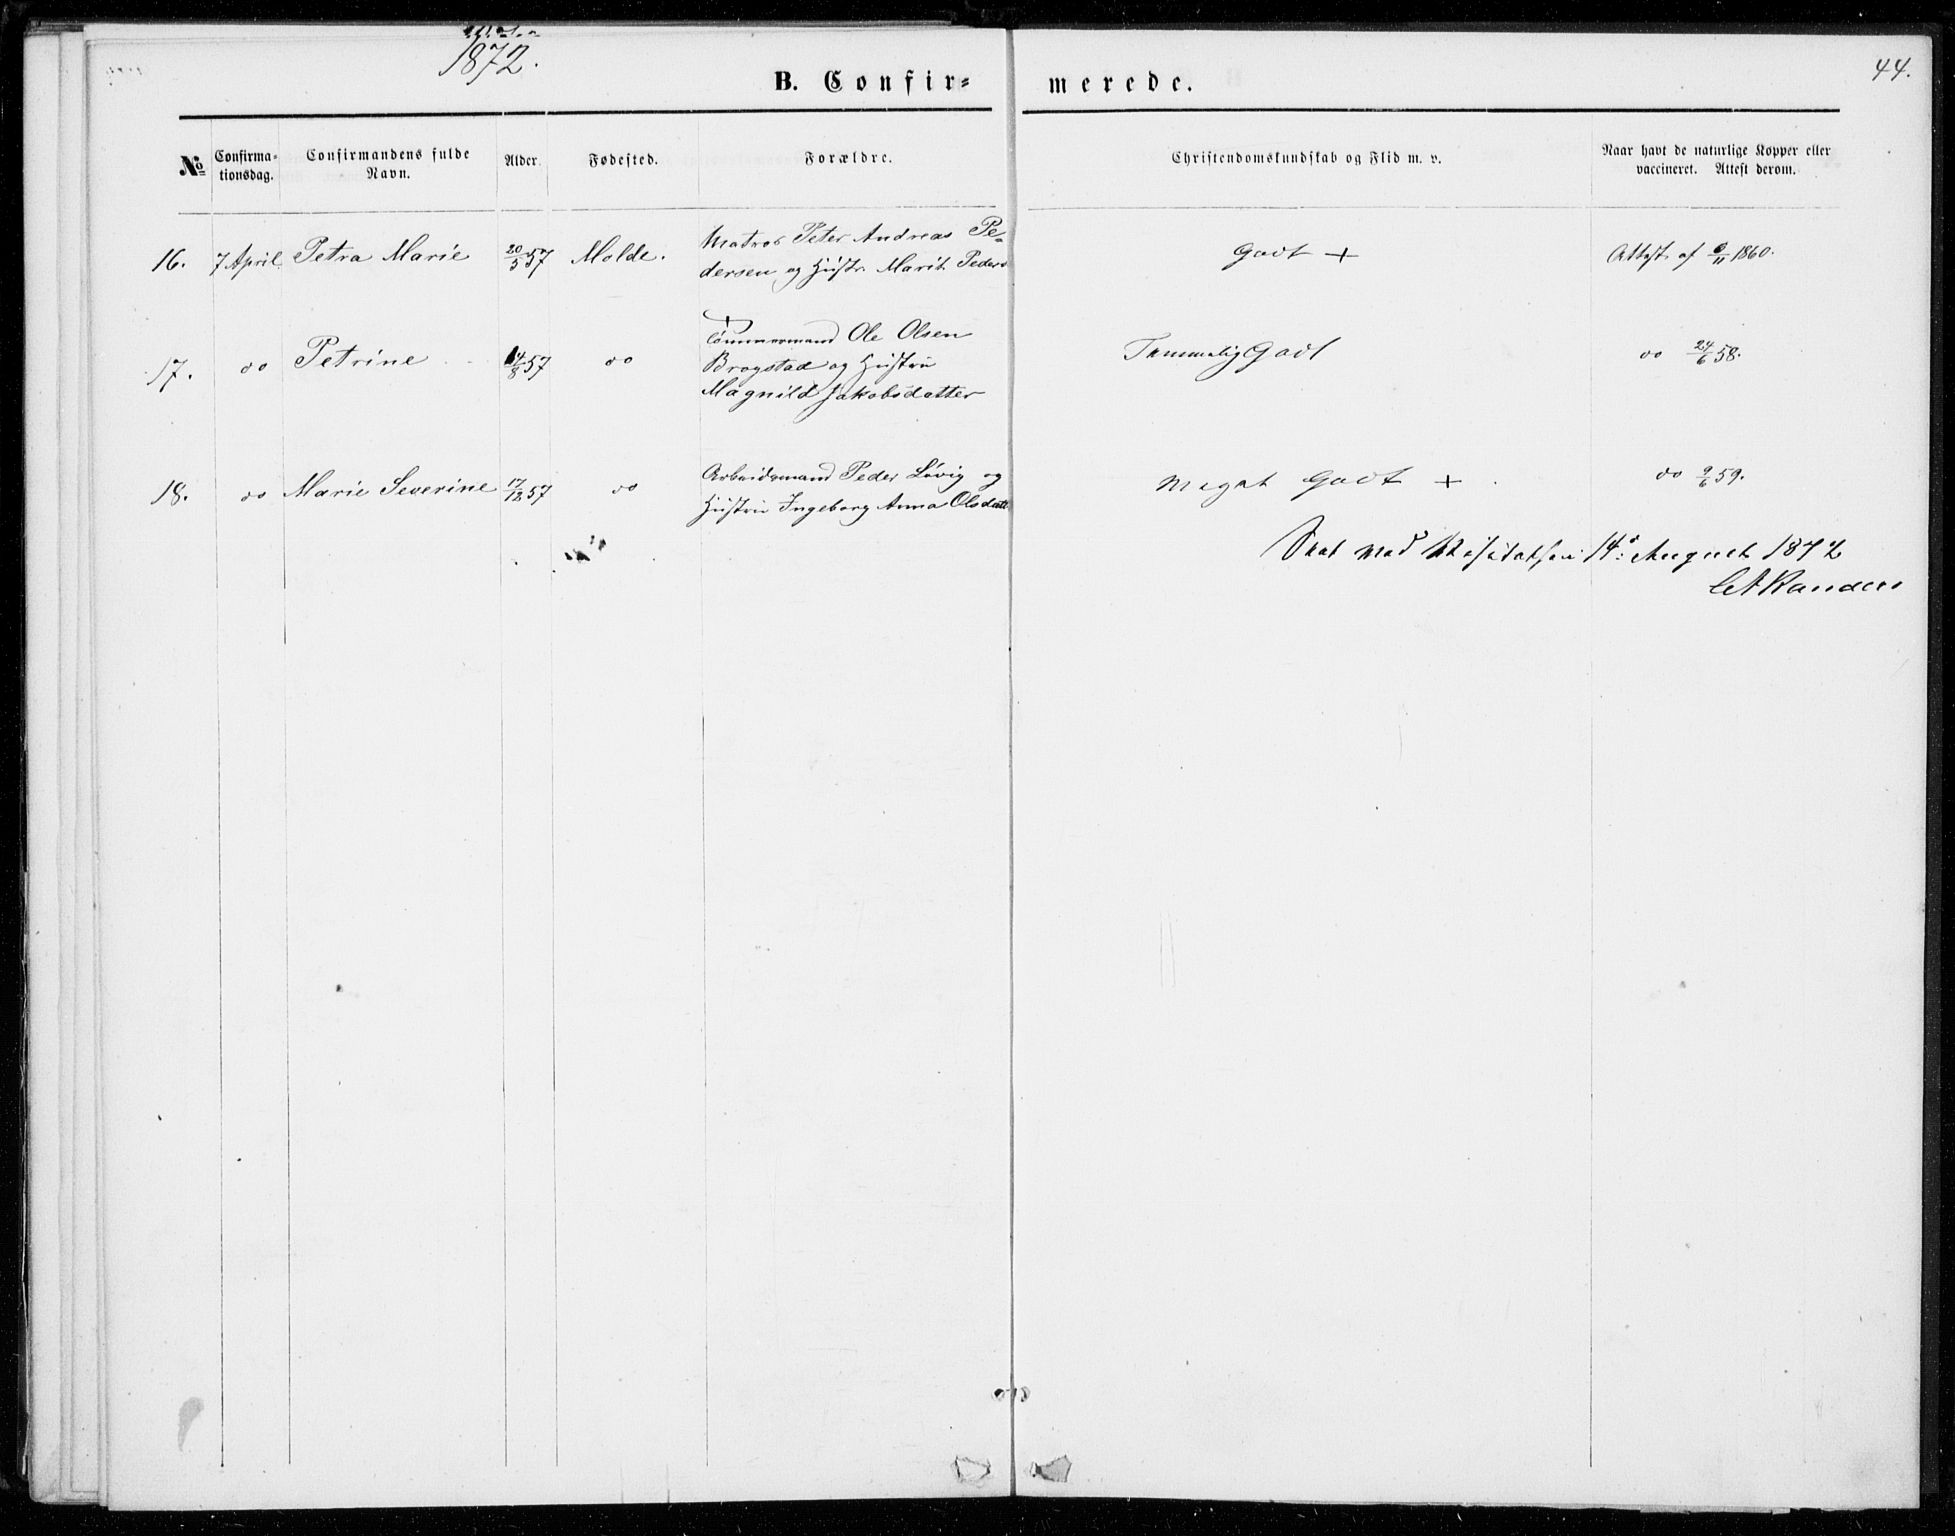 1872.
44.
B. Confir= merede.
№
Confirma=
tionsdag.
Confirmandens fulde
Navn.
Alder.
Fødested.
Forældre.
Christendomskundskab og Flid m. v.
Naar havt de naturlige Kopper eller
vaccineret. Attest derom.
16. 7 April Petra Marie 20/5 57 Molde. Matros Peter Andreas Pe=
dersen og Hustr. Marit Peders
Godt + Attest af 6/11 1860.
17. do Petrine 14/8 57 do Tømmermand Ole Olsen
Brogstad og Hustru
Magnild Jakobsdatter
Temmelig Godt do 24/6 58.
18. do Marie Severine 17/12 57 do Arbeidsmand Peder Løvig og
Hustru Ingeborg Anna Olsdatt
Meget Godt + do 9/6 59.
Seet ved 14de August 1872
Randers